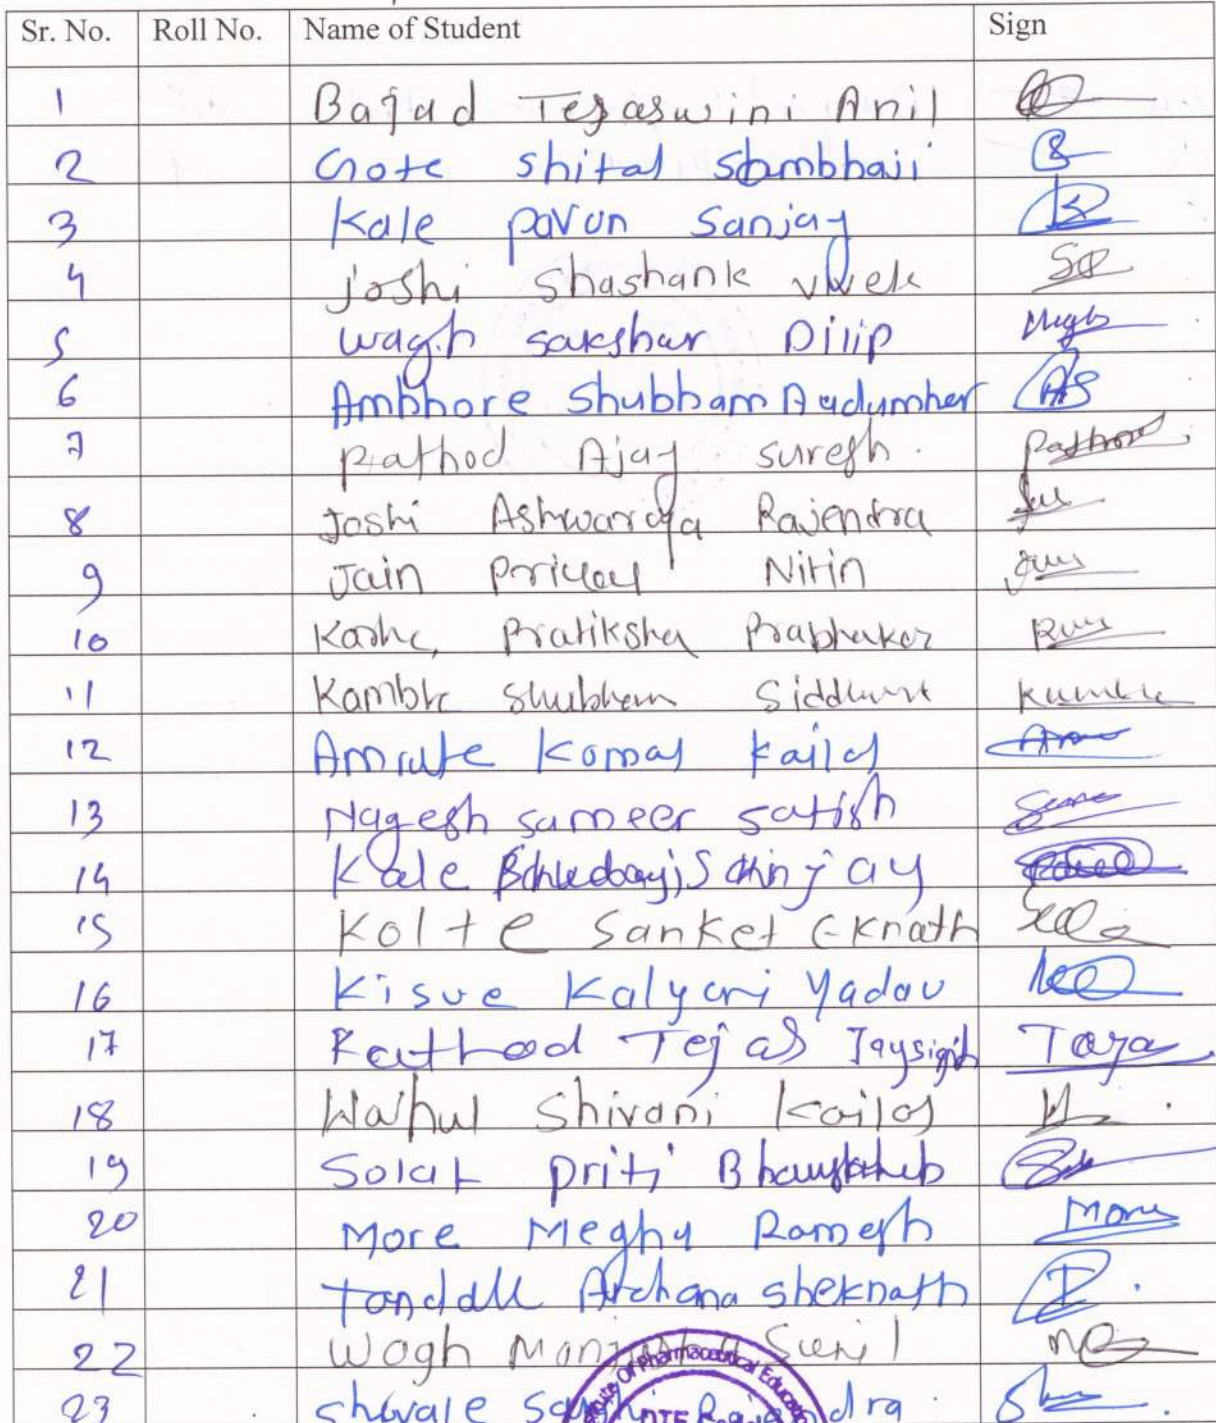 Sr. No. Roll No. Name of Student Sign
1 Bajad Tejaswini Anil
2 Gote shital Sambhaji
3 Kale pavan Sanjay
4 joshi Shashank vivek
5 wagh sakshar Dilip
6 Ambhore Shubham Audumber AS
7 Rathod Ajay suresh Rathod
8 Joshi Ashwarya Rajendra
9 Jain Nitin
10 Pratiksha Prabhakar
11 Kamble Shubham Siddhant Kamble
12 Amrute Komal Kailas
13 Nagesh sameer satish
14 Kale
15 Kolte Sanket Eknath
16 Kisve Kalyani Yadav
17 Rathod Tejas Jaysigh
18 Wahul Shivani Kailas
19 Solat priti Bhausaheb
20 More Megha Ramesh More
21 Archana sheknath
22 Wagh Sunil
23 shivale
Of Pharmaceutical
DTE